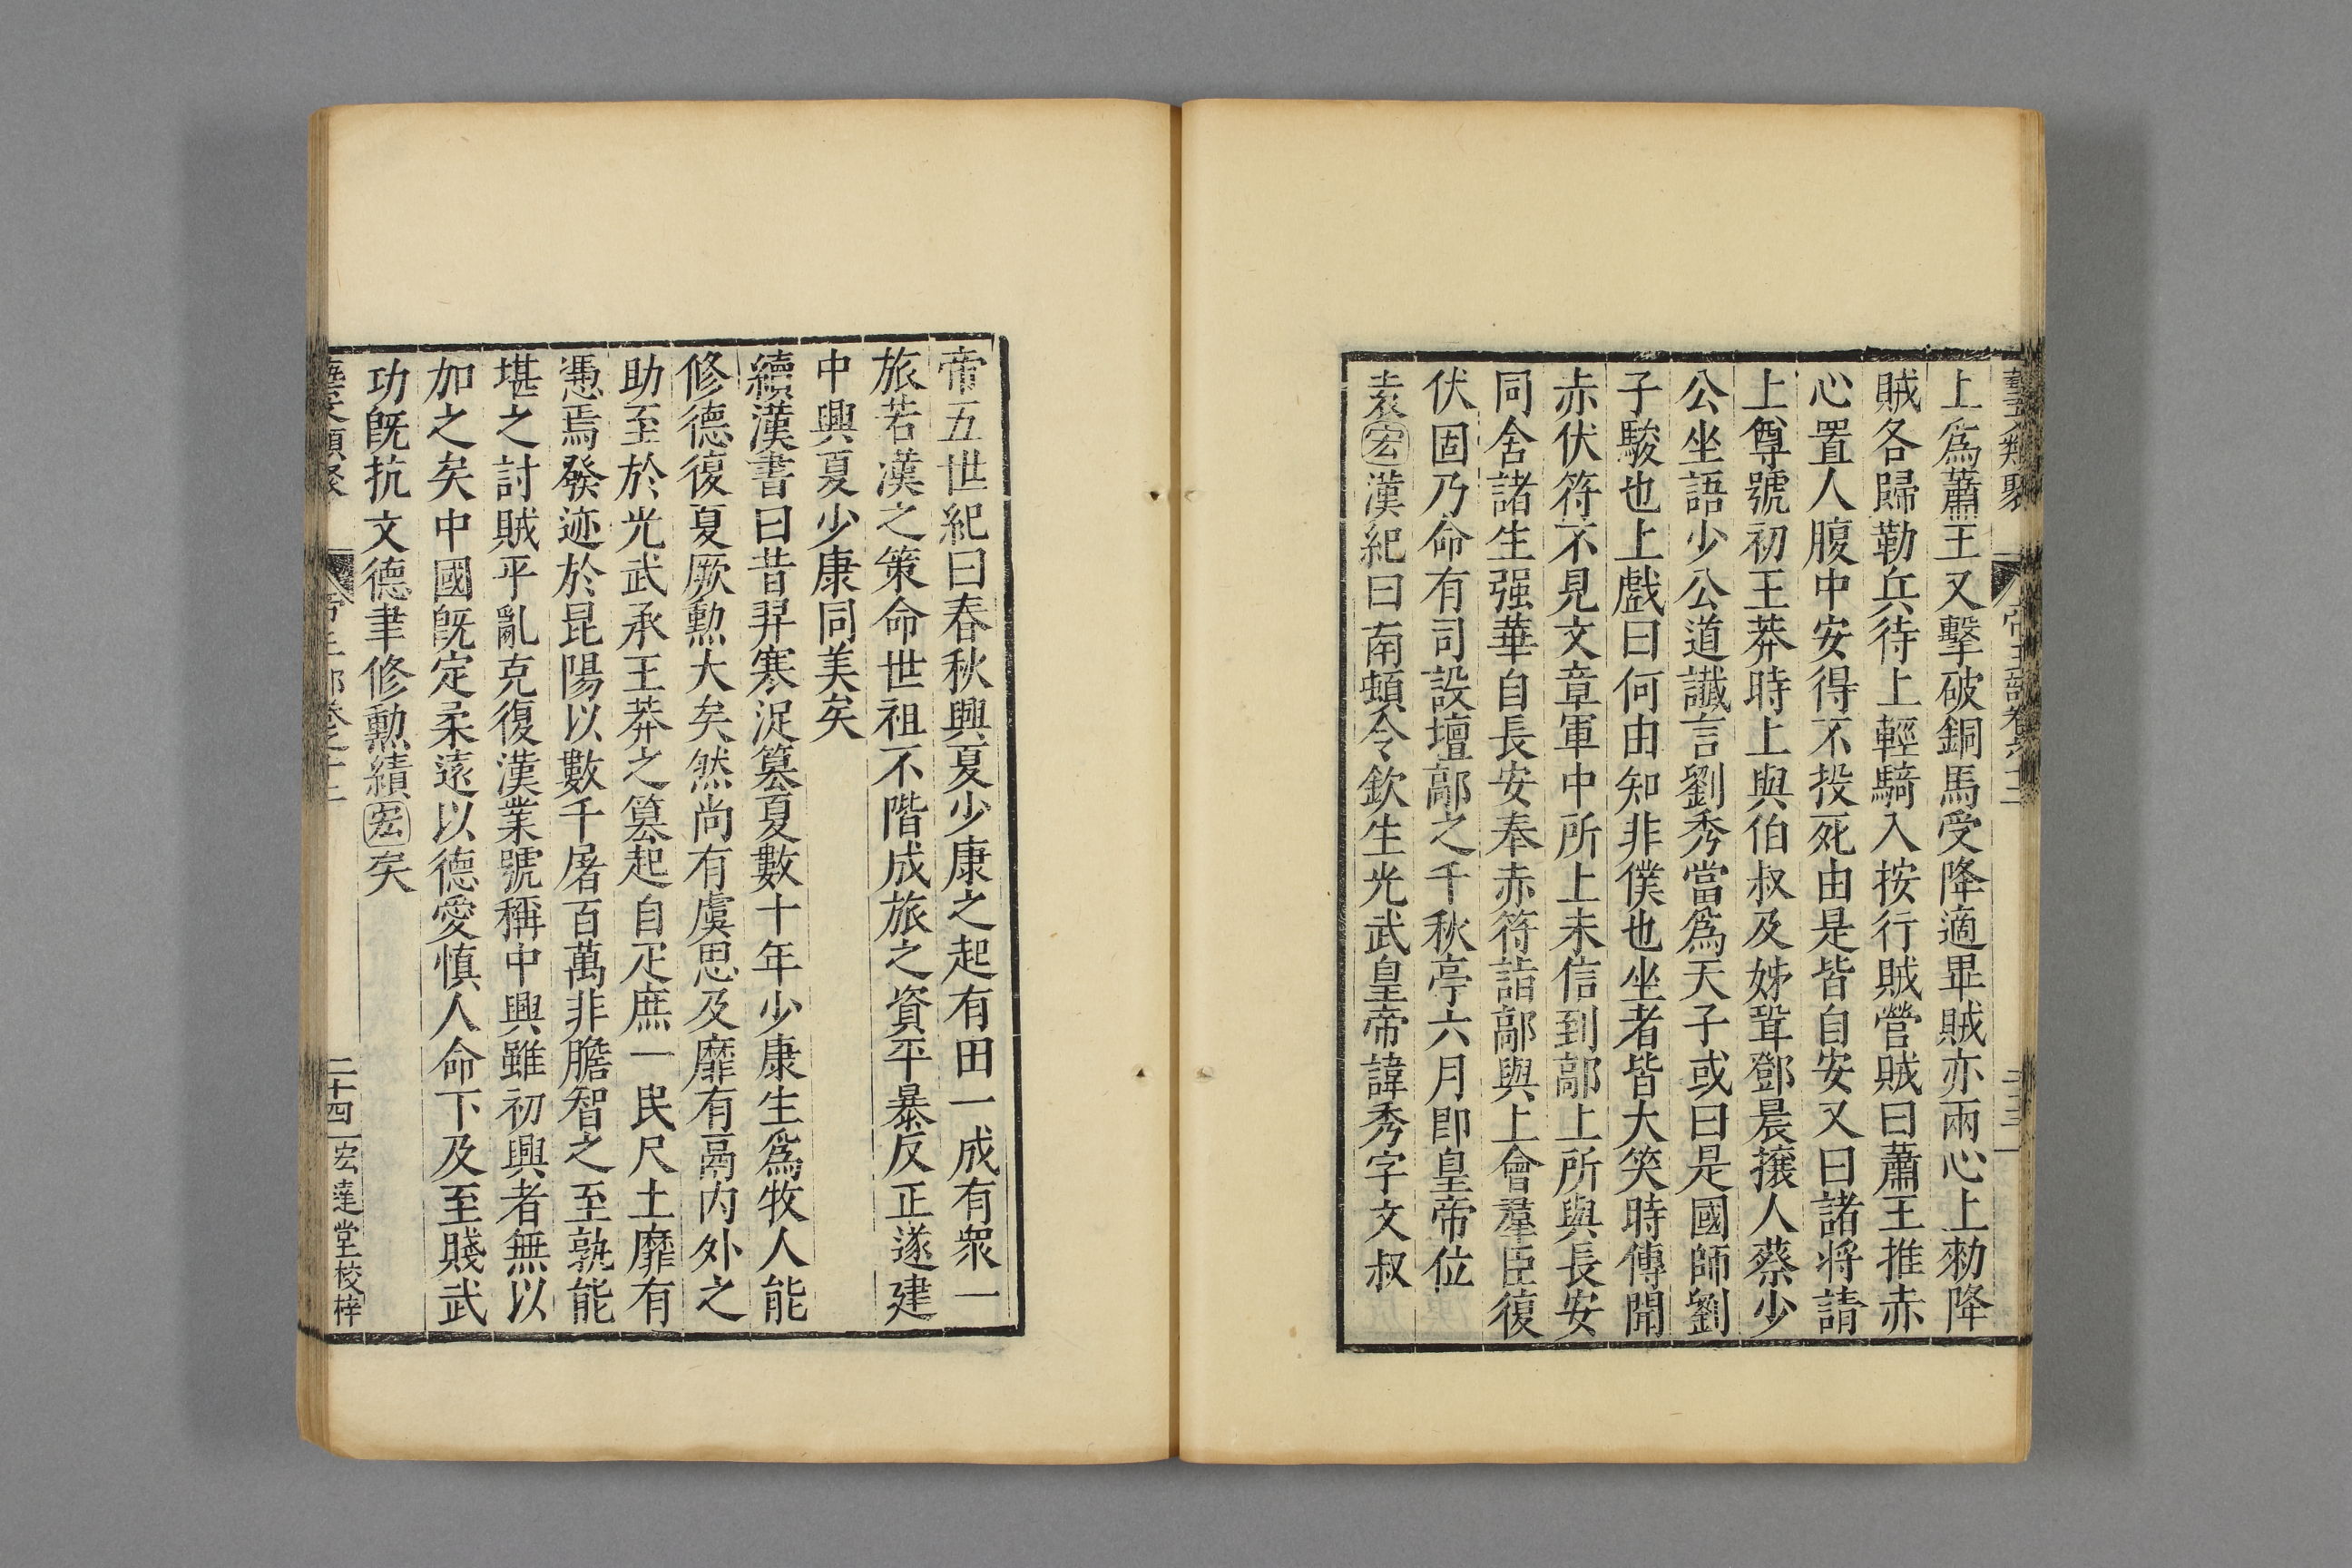 藝文類聚 帝王部卷之十二 二十三
上爲蕭王又擊破銅馬受降適畢賊亦兩心上勑降
賊各歸勒兵待上輕騎入按行賊營賊曰蕭王推赤
心置人腹中安得不投死由是皆自安又曰諸将請
上尊號初王莽時上與伯叔及姊壻鄧晨攘人蔡少
公坐語少公道讖言劉秀當爲天子或曰是國師劉
子駿也上戲曰何由知非僕也坐者皆大笑時傳聞
赤伏符不見文章軍中所上未信到鄗上所與長安
同舍諸生强華自長安奉赤符詣鄗與上會羣臣復
伏固乃命有司設壇鄗之千秋亭六月卽皇帝位
袁宏漢紀曰南頓令欽生光武皇帝諱秀字文叔
帝五世紀曰春秋興夏少康之起有田一成有衆一
旅若漢之策命世祖不階成旅之資平暴反正遂建
中興夏少康同美矣
續漢書曰昔羿寒浞篡夏數十年少康生爲牧人能
修德復夏厥勲大矣然尚有虞思及靡有鬲内外之
助至於光武承王莽之篡起自疋庶一民尺土靡有
憑焉發迹於昆陽以數千屠百萬非膽智之至孰能
堪之討賊平亂克復漢業號稱中興雖初興者無以
加之矣中國旣定柔遠以德愛慎人命下及至賤武
功旣抗文德聿修勲績宏矣
藝文類聚 帝王部卷之十二 二十四 宏達堂校梓